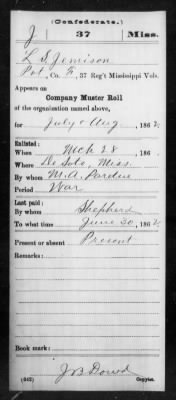 (Confederate.)
J 37 Miss.
L S Jemison
Pvt, Co. F, 37 Reg't Mississippi Vols.
Appears on
Company Muster Roll
of the organization named above,
for July & Aug, 1862.
Enlisted:
When Mch 28, 186 .
Where De Soto, Miss.
By whom M. A. Pardue
Period War
Last paid:
By whom Shepherd
To what time June 30, 1862.
Present or absent Present
Remarks:
Book mark:
J B Dowd
(642) Copyist.